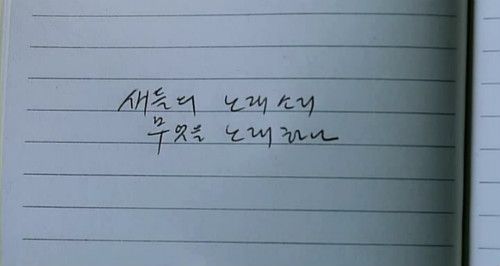 새들의 노래소리
무엇을 노래하나